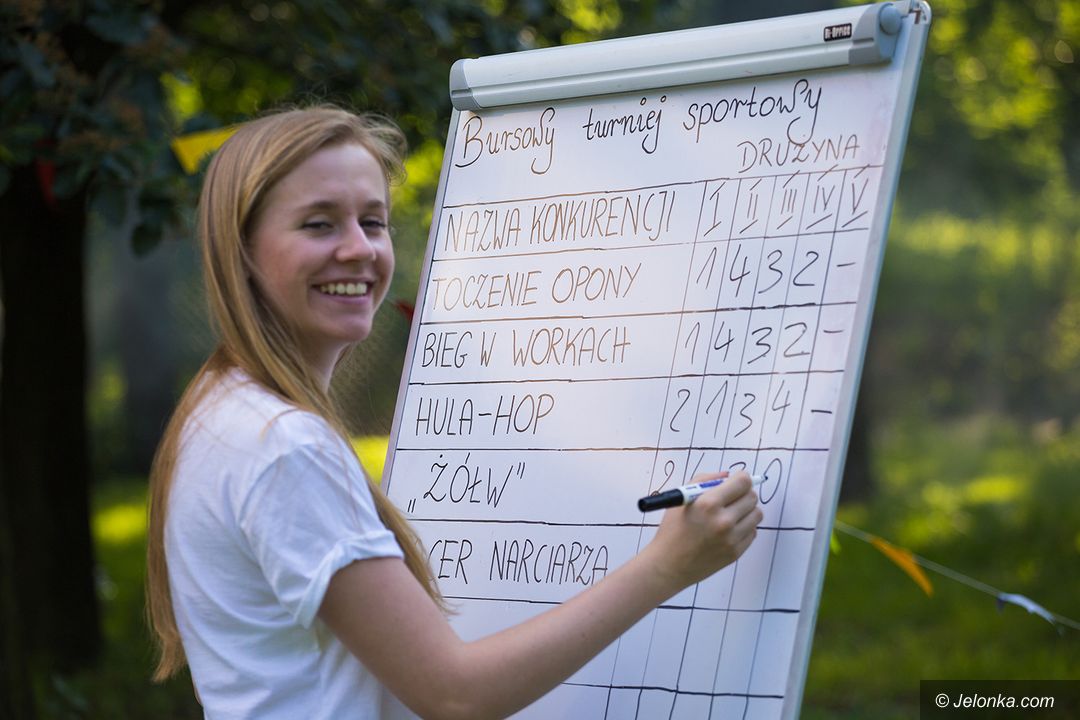 Bi-Office
Bursowy turniej sportowy
DRUŻYNA
NAZWA KONKURENCJI I II III IV V
TOCZENIE OPONY 1 4 3 2 -
BIEG W WORKACH 1 4 3 2 -
HULA-HOP 2 1 3 4 -
„ŻÓŁW” 2
CER NARCIARZA
© Jelonka.com